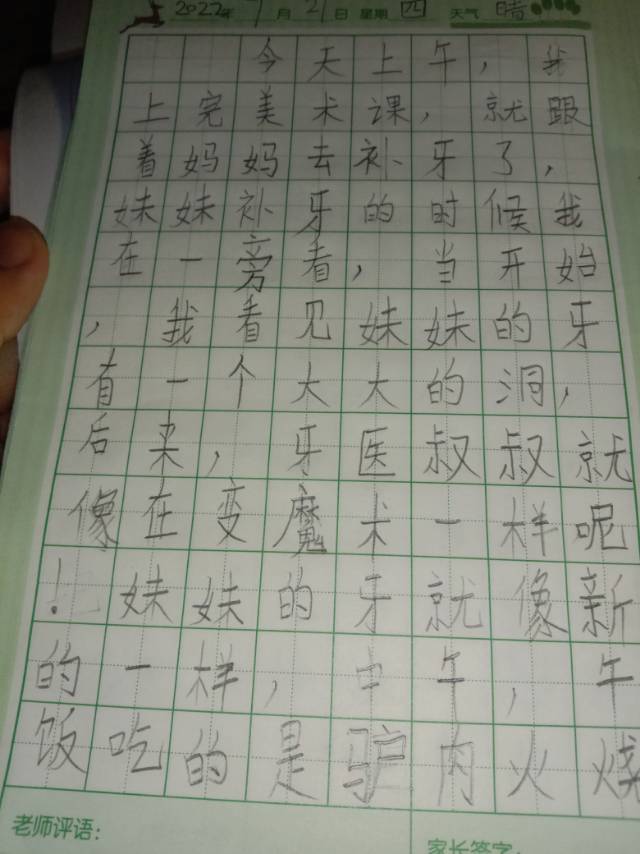 2022年7月21日 星期四 天气 晴
今天上午，我
上完美术课，就跟
着妈妈去补牙了，
妹妹补牙的时候我
在一旁看，当开始
，我看见妹妹的牙
有一个大大的洞，
后来，牙医叔叔就
像在变魔术一样呢
！妹妹的牙就像新
的一样，中午，午
饭吃的是驴肉火烧
老师评语：
家长签字：